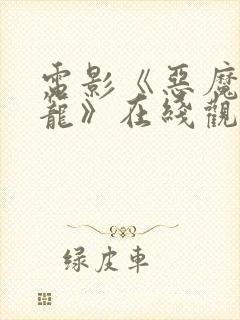 電影《惡魔
龍》在綫觀
綠皮車